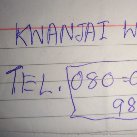 KWANJAI W
TEL. 080=0
98